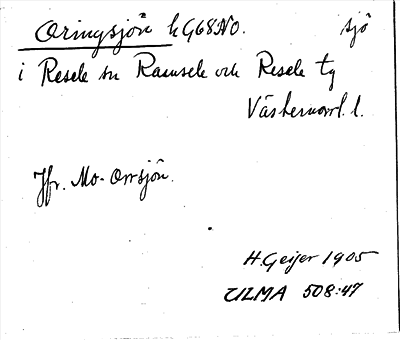 Oringsjön kG68NO. sjö
i Resele sn Ramsele och Resele tg
Västernorrl. l.
Jfr. Mo- Orrsjön.
H. Geijer 1905
ULMA 508:47